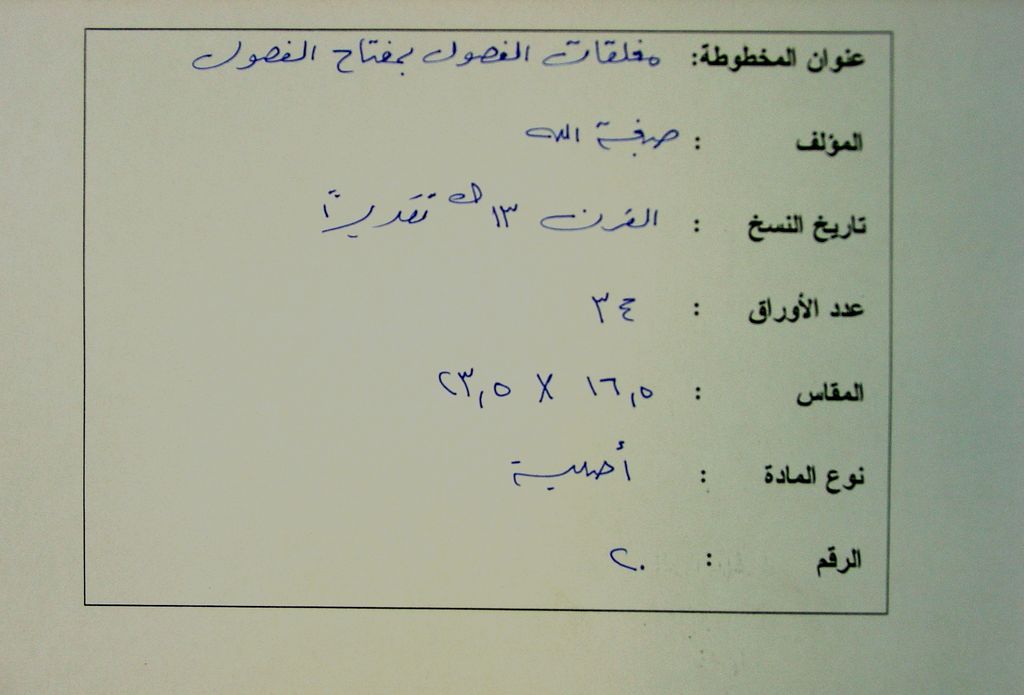 عنوان المخطوطة: مغلقات الفصول بمفتاح الفصول
المؤلف : صبغة الله
تاريخ النسخ : القرن ١٣ هـ تقديراً
عدد الأوراق : ٣٤
المقاس : ١٦,٥ X ٢٣,٥
نوع المادة : أصلية
الرقم : ٢٠